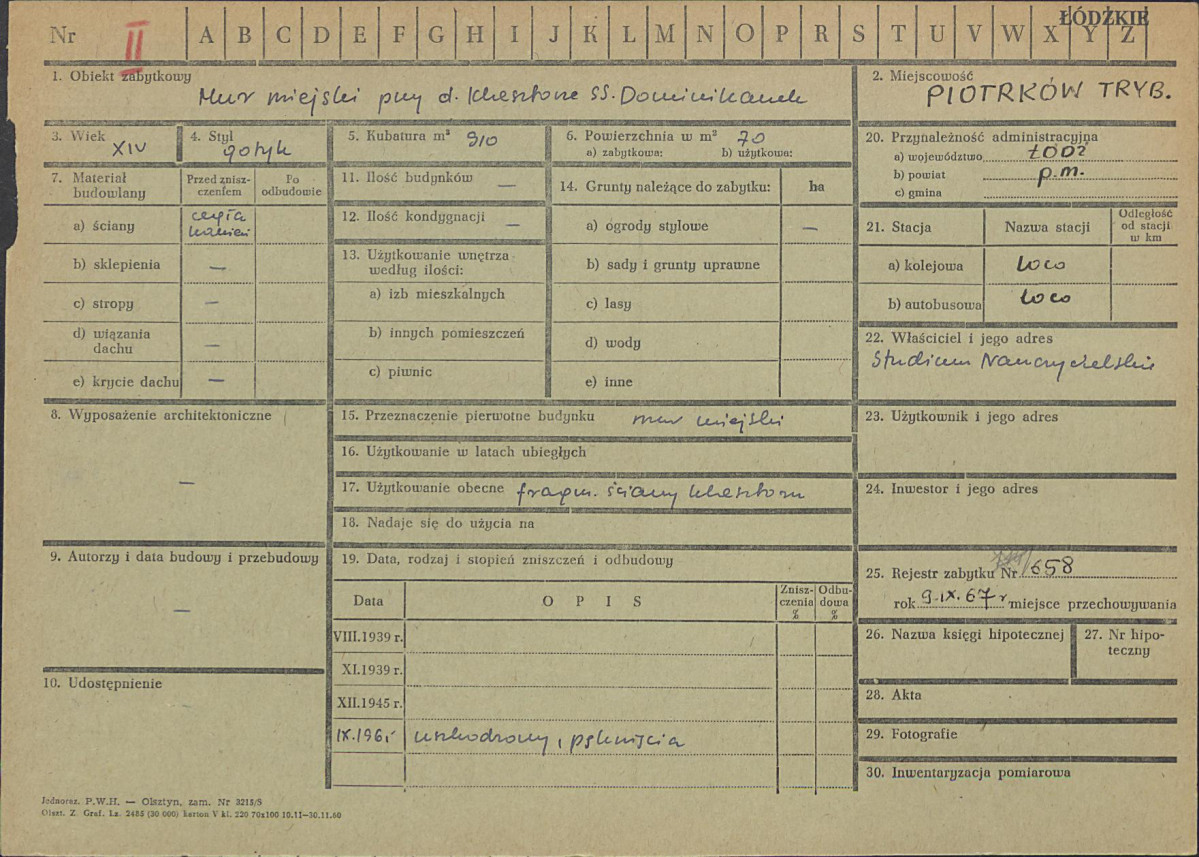 Nr II A B C D E F G H I J K L M N O P R S T U V W X Y Z ŁÓDZKIE
1. Obiekt zabytkowy
Mur miejski przy d. klasztorze SS. Dominikanek
2. Miejscowość
PIOTRKÓW TRYB.
3. Wiek
XIV
4. Styl
gotyk
5. Kubatura m³ 910
6. Powierzchnia w m² 70
a) zabytkowa: b) użytkowa:
7. Materiał budowlany
Przed zniszczeniem
Po odbudowie
a) ściany
cegła
kamień
b) sklepienia —
c) stropy —
d) wiązania dachu —
e) krycie dachu —
8. Wyposażenie architektoniczne
—
9. Autorzy i data budowy i przebudowy
—
10. Udostępnienie
11. Ilość budynków —
12. Ilość kondygnacji —
13. Użytkowanie wnętrza według ilości:
a) izb mieszkalnych
b) innych pomieszczeń
c) piwnic
14. Grunty należące do zabytku: ha
a) ogrody stylowe —
b) sady i grunty uprawne
c) lasy
d) wody
e) inne
15. Przeznaczenie pierwotne budynku mur miejski
16. Użytkowanie w latach ubiegłych
17. Użytkowanie obecne fragm. ściany klasztoru
18. Nadaje się do użycia na
19. Data, rodzaj i stopień zniszczeń i odbudowy
Data OPIS Zniszczenia % Odbudowa %
VIII.1939 r.
XI.1939 r.
XII.1945 r.
IX.1965 uszkodzony, pęknięcia
20. Przynależność administracyjna
a) województwo ŁÓDŹ
b) powiat p.m.
c) gmina
21. Stacja Nazwa stacji Odległość od stacji w km
a) kolejowa loco
b) autobusowa loco
22. Właściciel i jego adres
Studium Nauczycielskie
23. Użytkownik i jego adres
24. Inwestor i jego adres
25. Rejestr zabytku Nr /658
rok 9.IX.67 r miejsce przechowywania
26. Nazwa księgi hipotecznej
27. Nr hipoteczny
28. Akta
29. Fotografie
30. Inwentaryzacja pomiarowa
Jednoraz. P.W.H. — Olsztyn, zam. Nr 3215/S
Olszt. Z. Graf. Lz. 2485 (30 000) karton V kl. 220 70x100 10.11—30.11.60